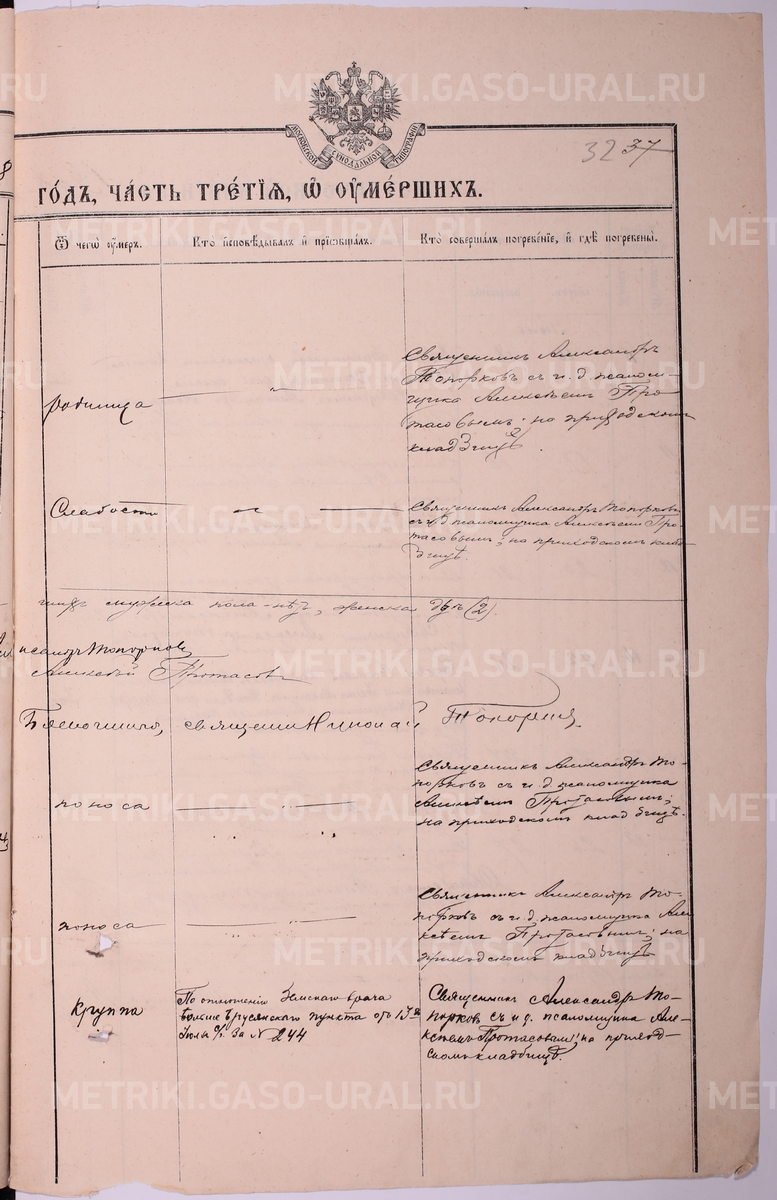 METRIKI.GASO-URAL.RU
МОСКОВСКОЙ СѴНОДАЛЬНОЙ ТИПОГРАФІИ
32 37
ГО́ДЪ, ЧА́СТЬ ТРЕ́ТІЯ, Ѿ ОУМЕ́РШИХЪ.
Ѿ чегѡ̀ оу́меръ.
Кто̀ и҆сповѣ́дывалъ и҆ прїѡбща́лъ.
Кто̀ соверша́лъ погребе́нїе, и҆ гдѣ̀ погребены̀.
родимца
Священникъ Александръ
Топорковъ съ и. д. псалом-
щика Алексѣемъ Про-
тасовымъ; на приходскомъ
кладбищѣ.
Слабости
Священникъ Александръ Топорковъ
съ и. д. псаломщика Алексѣемъ Про-
тасовымъ; на приходскомъ клад-
бищѣ.
мужеска пола - нѣтъ, женска двѣ (2).
Топорковъ
Алексѣй Протасовъ
Благочинный, священникъ Николай Топорковъ
поноса
Священникъ Александръ То-
порковъ съ и. д. псаломщика
Алексѣемъ Протасовымъ;
на приходскомъ кладбищѣ.
поноса
Священникъ Александръ То-
порковъ съ и. д. псаломщика Але-
ксѣемъ Протасовымъ; на
приходскомъ кладбищѣ
круппа
По отношенію Земскаго врача
пункта отъ 13го
Іюля с/г. за № 244
Священникъ Александръ То-
порковъ съ и д. псаломщика Але-
ксѣемъ Протасовымъ; на приход-
скомъ кладбищѣ.